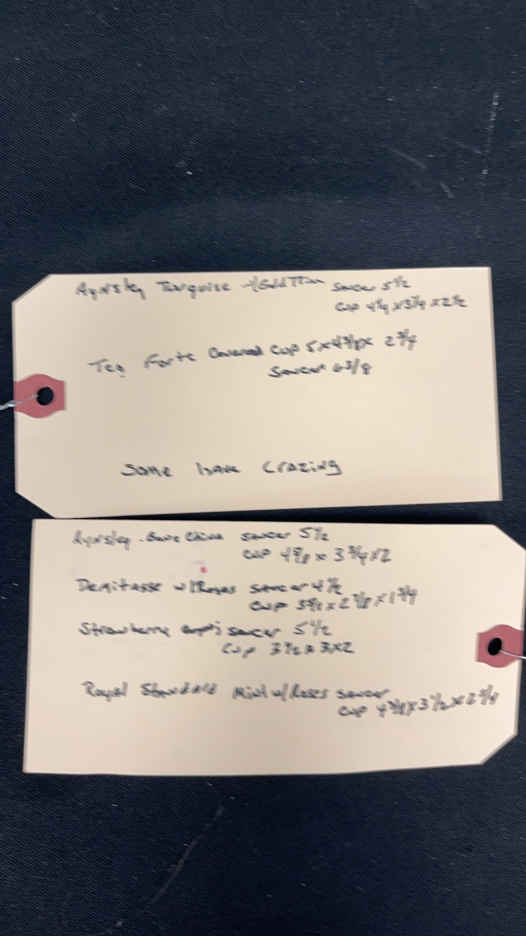 Aynsley Turquise w/Gold Trim saucer 5½
cup 4¼ x 3¼ x 2½
Tea Forte Covered Cup 5x4⅜x 2¾
Saucer 6⅜
Some have Crazing
Aynsley Bone China saucer 5½
cup x 3¾ x 2
Demitasse w/Roses saucer 4½
cup x 1¾
Strawberry saucer 5½
cup 3½ x 3 x 2
Royal Standard Mini w/Roses saucer
cup x 3½ x